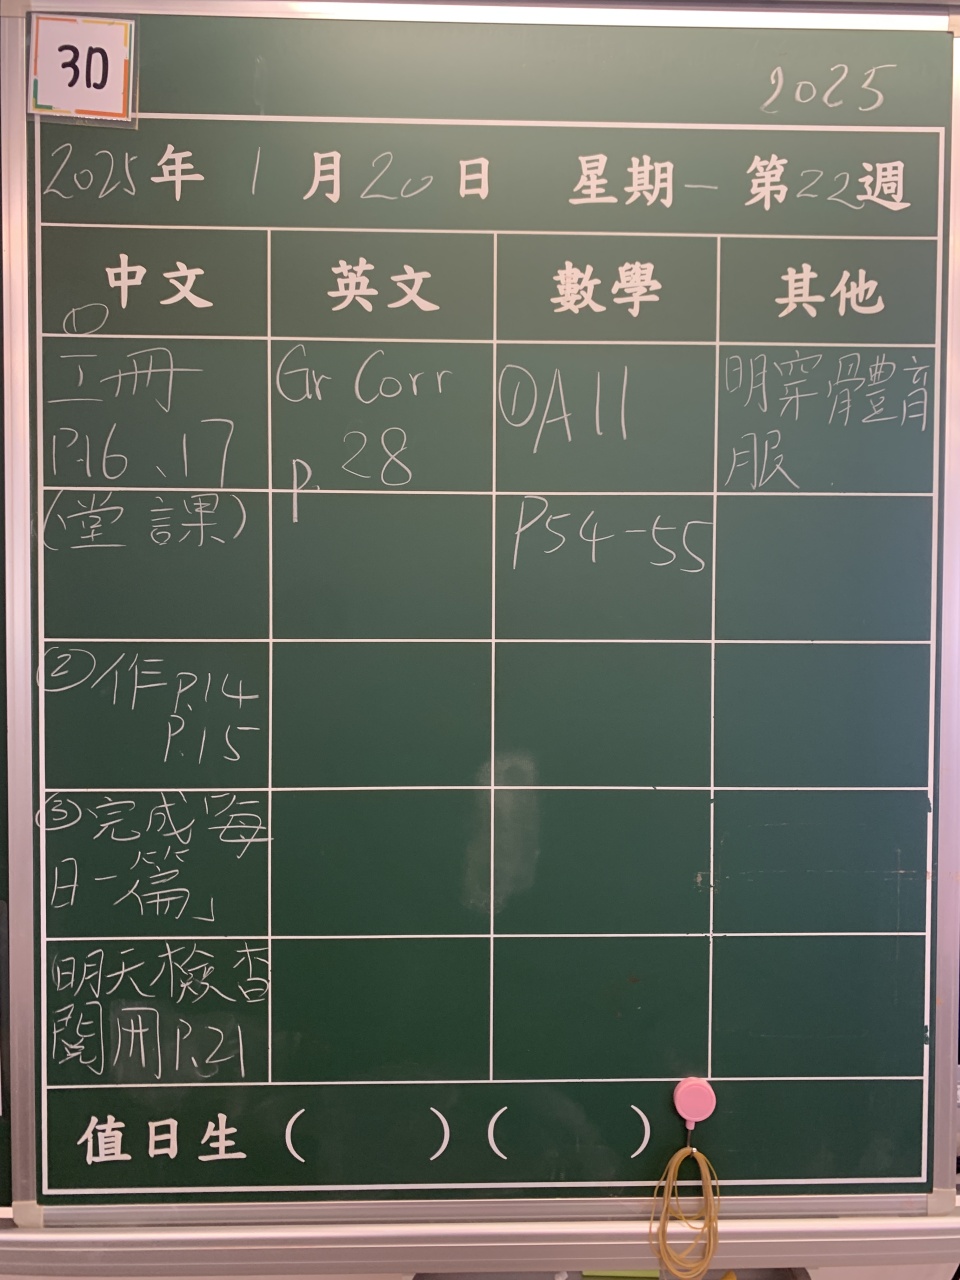 3D
2025
2025年 1月20日 星期一 第22週
中文 英文 數學 其他
①
工冊
P.16、17
(堂課)
②作P.14
P.15
③完成「每
日一篇」
明天檢查
閱冊P.21
Gr Corr
p. 28
①A11
P54-55
明穿體育
服
值日生 ( ) ( )